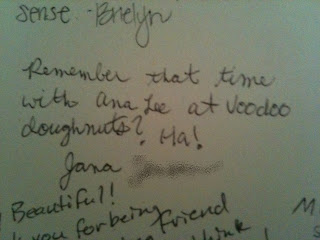 sense - Brielyn
Remember that time
with Ana Lee at Voodoo
doughnuts? Ha!
Jana
Beautiful!
you for being Friend
think!
M